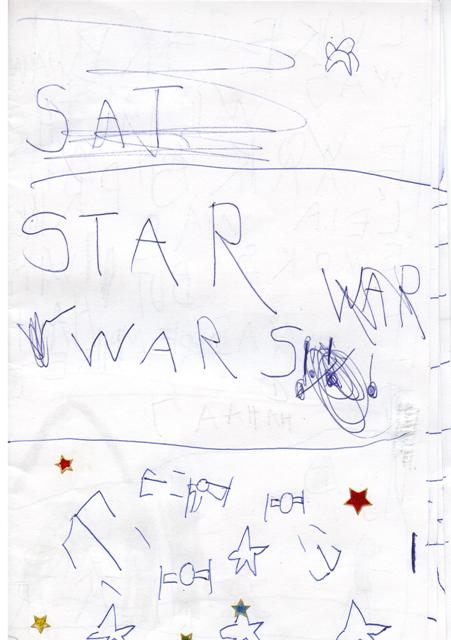 SAT
STAR
WAR
WARS